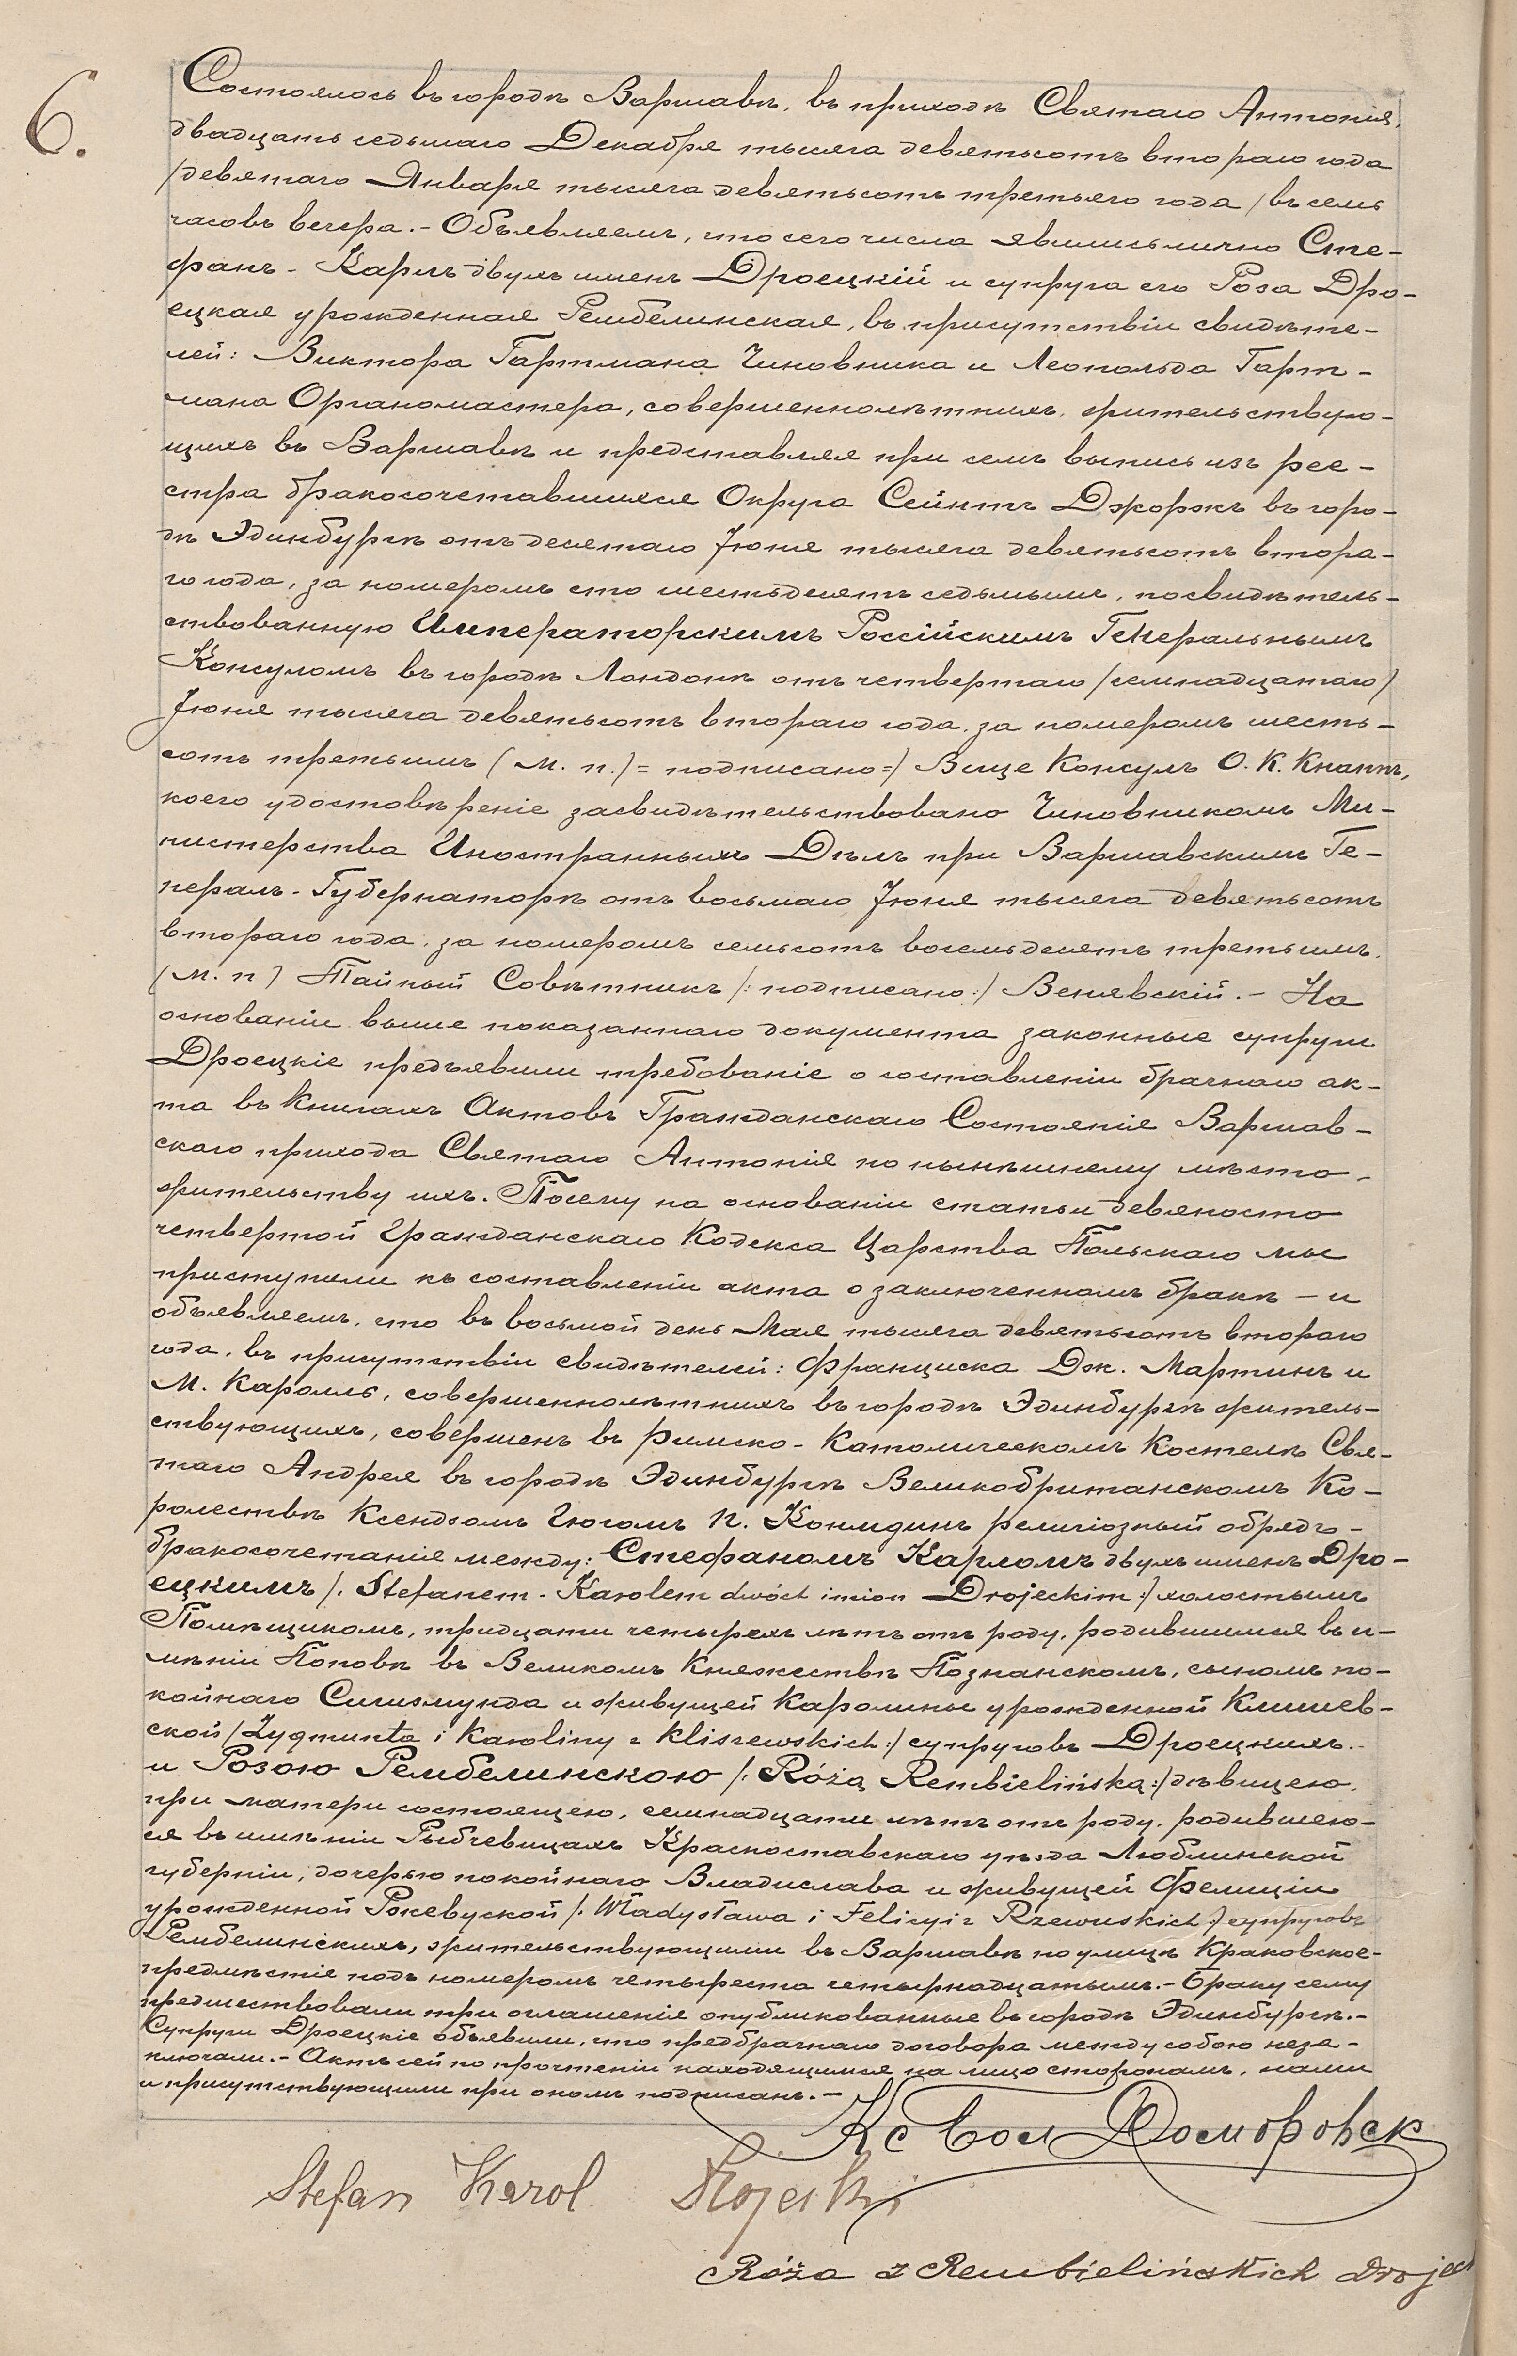 6.
Состоялось въ городѣ Варшавѣ, въ приходѣ Святаго Антонія,
двадцать седьмаго Декабря тысяча девятьсотъ втораго года
/девятаго Января тысяча девятьсотъ третьяго года/ въ семь
часовъ вечера.- Объявляемъ, что сего числа явились лично Сте-
фанъ-Карлъ двухъ именъ Дроецкій и супруга его Роза Дро-
ецкая урожденная Рембелинская, въ присутствіи свидѣте-
лей: Виктора Гартмана Чиновника и Леопольда Гарт-
мана Органомастера, совершеннолѣтнихъ, жительствую-
щихъ въ Варшавѣ и представляя при семъ выпись изъ рее-
стра бракосочетавшихся Округа Сейнтъ Джоржъ въ горо-
дѣ Эдинбургѣ отъ десятаго Іюня тысяча девятьсотъ втора-
го года, за номеромъ сто шестьдесятъ седьмымъ, посвидѣтель-
ствованную Императорскимъ Россійскимъ Генеральнымъ
Консуломъ въ городѣ Лондонѣ отъ четвертаго /семнадцатаго/
Іюня тысяча девятьсотъ втораго года, за номеромъ шесть-
сотъ третьимъ (М. п.)=подписано=/ Вице Консулъ О. К. Кнаппъ,
коего удостовѣреніе засвидѣтельствовано Чиновникомъ Ми-
нистерства Иностранныхъ Дѣлъ при Варшавскимъ Ге-
нералъ-Губернаторѣ отъ восьмаго Іюня тысяча девятьсотъ
втораго года, за номеромъ семьсотъ восемьдесятъ третьимъ.
(М. п) Тайный Совѣтникъ /:подписано:/ Венявскій.- На
основаніи выше показаннаго документа законные супруги
Дроецкіе предъявили требованіе о составленіи брачнаго ак-
та въ книгахъ Актовъ Гражданскаго Состоянія Варшав-
скаго прихода Святаго Антонія по нынѣшнему мѣсто-
жительству ихъ. Посему на основаніи статьи девяносто
четвертой Гражданскаго Кодекса Царства Польскаго мы
приступили къ составленіи акта о заключенномъ бракѣ - и
объявляемъ, что въ восьмой день Мая тысяча девятьсотъ втораго
года, въ присутствіи свидѣтелей: Франциска Дж. Мартинъ и
М. Кароллъ, совершеннолѣтнихъ въ городѣ Эдинбургѣ житель-
ствующихъ, совершенъ въ Римско-Католическомъ Костелѣ Свя-
таго Андрея въ городѣ Эдинбургѣ Великобританскомъ Ко-
ролествѣ Ксендзомъ Гюгомъ П. религіозный обрядъ-
бракосочетанія между: Стефаномъ Карломъ двухъ именъ Дро-
ецкимъ /: Stefanem-Karolem dwóch imion Drojeckim:/ холостымъ
Помѣщикомъ, тридцати четырехъ лѣтъ отъ роду, родившимся въ и-
мѣніи Поповѣ въ Великомъ Княжествѣ Познанскомъ, сыномъ по-
койнаго Сигизмунда и живущей Каролины урожденной Клишев-
ской /Zygmunta i Karoliny z Kliszewskich:/ супруговъ Дроецкихъ.-
и Розою Рембелинскою /: Różą Rembielińską:/ дѣвицею,
при матери состоящею, семнадцати лѣтъ отъ роду, родившею-
ся въ имѣніи Рыбчевицахъ Красноставскаго уѣзда Люблинской
губерніи, дочерью покойнаго Владислава и живущей Фелиціи
урожденной Ржевуской /: Władysława i Felicyi z Rzewuskich:/ супруговъ
Рембелинскихъ, жительствующими въ Варшавѣ по улицѣ Краковское-
предмѣстіе подъ номеромъ четыреста четырнадцатымъ.- Браку сему
предшествовали три оглашенія опубликованные въ городѣ Эдинбургѣ.-
Супруги Дроецкіе объявили, что предбрачнаго договора между собою неза-
ключали.- Актъ сей по прочтеніи находящимся на лицо сторонамъ, нами
и присутствующими при ономъ подписанъ.-
Кс
Stefan Karol Drojecki
Róża z Rembielińskich Drojec